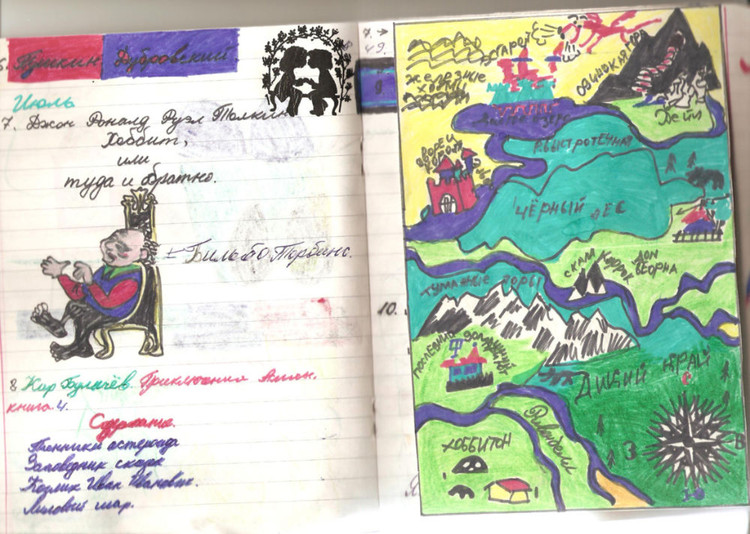 6. Пушкин Дубровский
Июль
7. Джон Роналд Руэл Толкин
Хоббит,
или
туда и обратно.
Бильбо Торбинс.
8 Кир Булычёв. Приключения Алисы.
книга 4.
Содержание.
Пленники астероида
Заповедник сказок
Козлик Иван Иванович.
Лиловый шар.
49.
10.
Железные
холмы
Эсгарот
Одинокая гора
Дейл
Долгое озеро
р. Быстротечная
Дворец
короля
Чёрный лес
Туманные горы
Скала Каррок
Дом
Беорна
Последний домашний
Дикий край
Ривенделл
Хоббитон
С
З
В
Ю